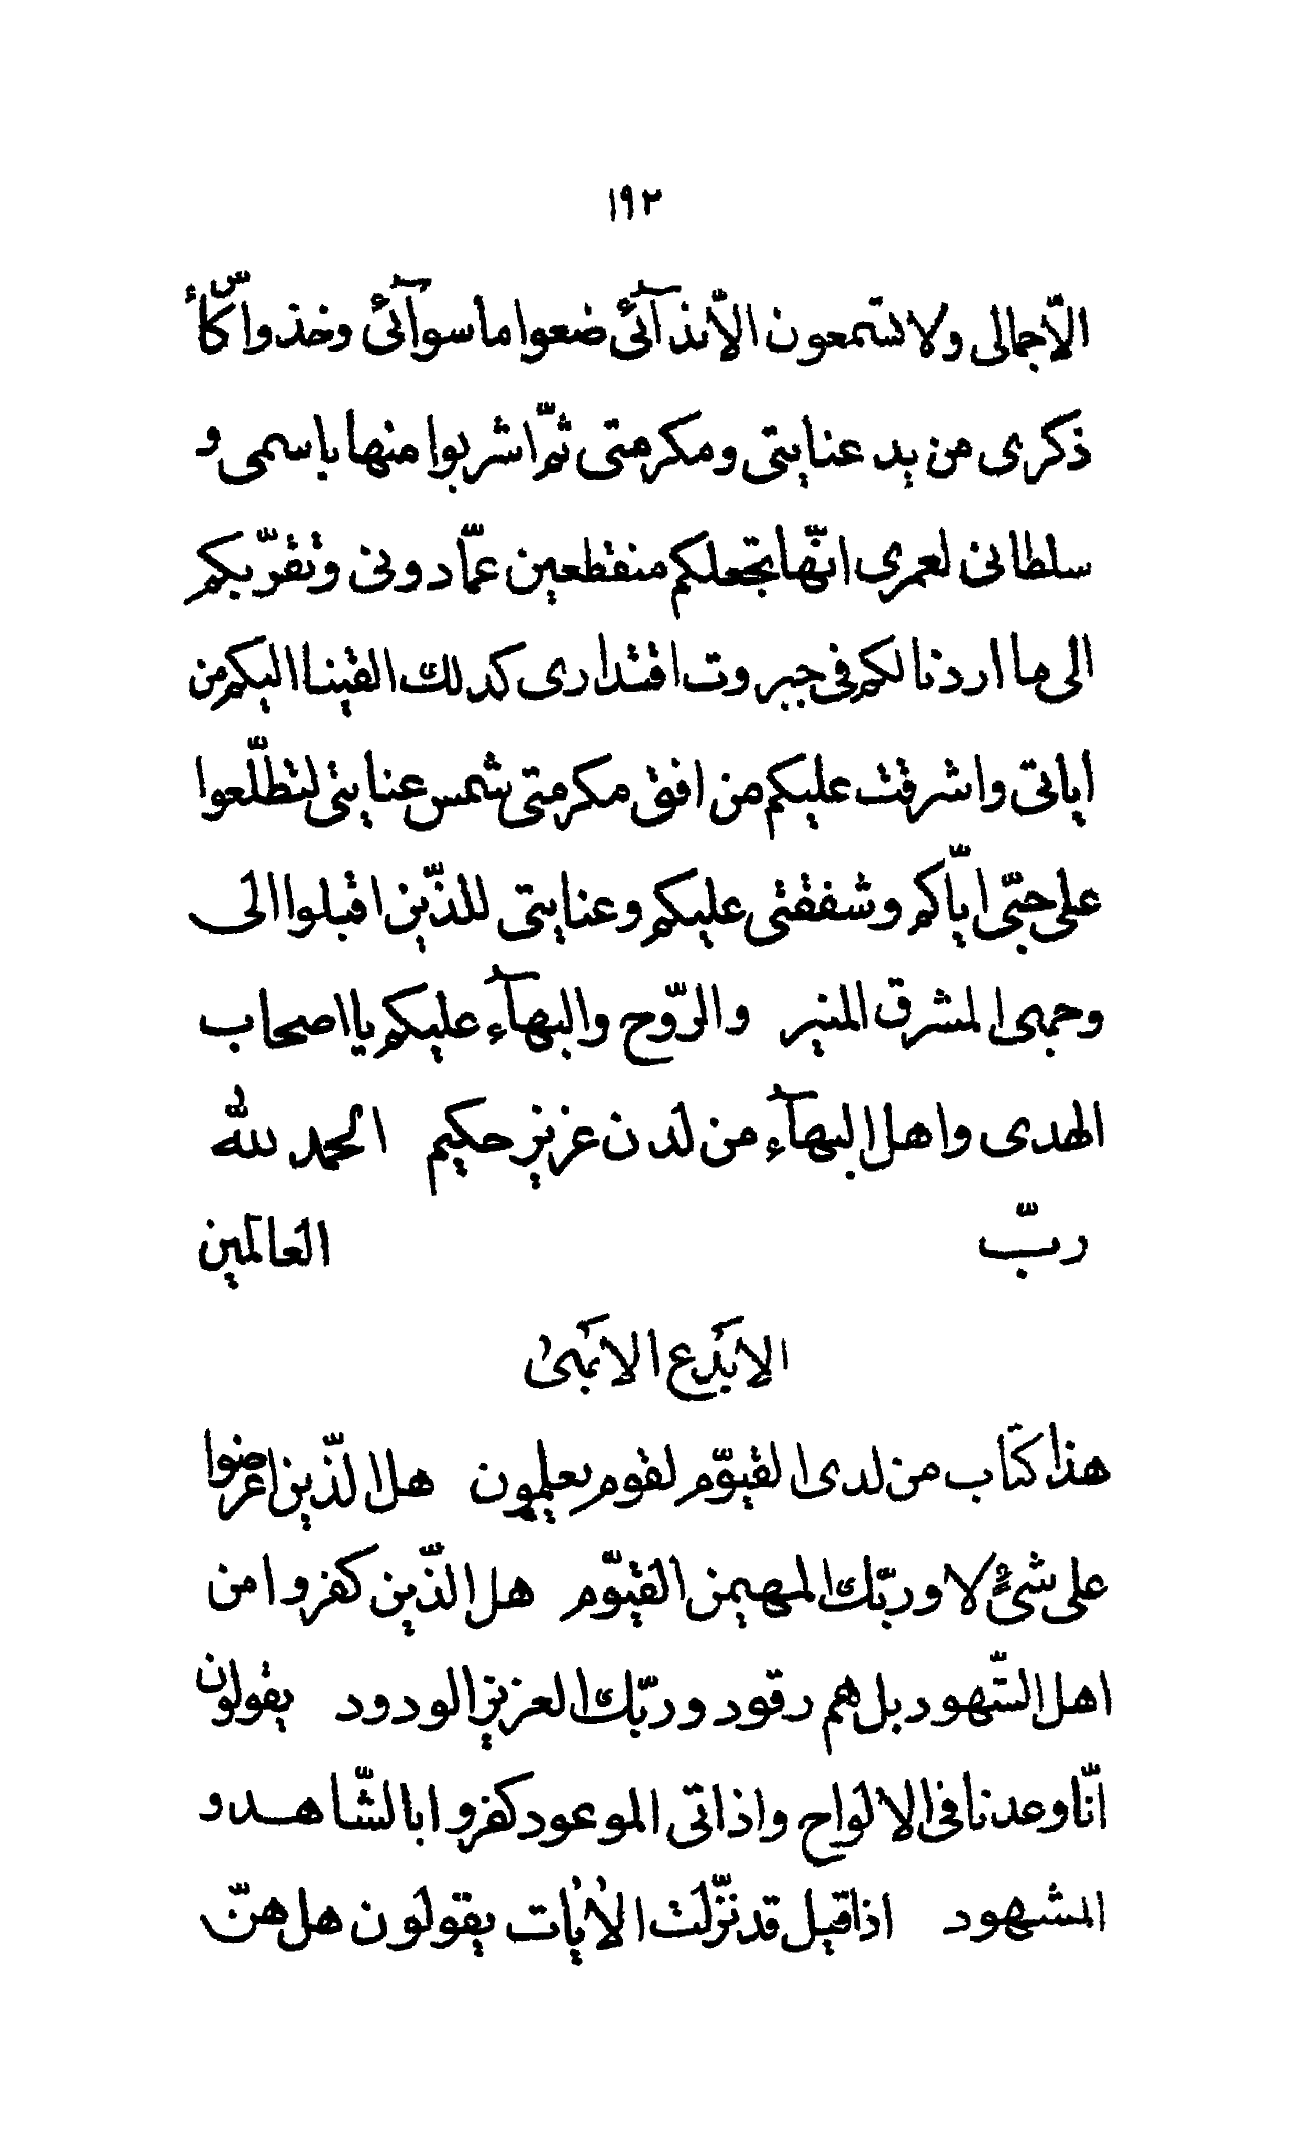 ١٩٢
الّا جمالى ولا تستمعون الّا ندآئى ضعوا ما سوآئى وخذوا كأس
ذكرى من يد عنايتى ومكرمتى ثمّ اشربوا منها باسمى و
سلطانى لعمرى انّها تجعلكم منقطعين عمّا دونى وتقرّبكم
الى ما اردنا لكم فى جبروت اقتدارى كذلك القينا اليكم من
اياتى واشرقت عليكم من افق مكرمتى شمس عنايتى لتطّلعوا
على حبّى ايّاكم وشفقتى عليكم وعنايتى للذّين اقبلوا الى
وجهى المشرق المنير والرّوح والبهآء عليكم يا اصحاب
الهدى واهل البهآء من لدن عزيز حكيم الحمد لله
ربّ العالمين
الابدع الابهىٰ
هذا كتاب من لدى القيّوم لقوم يعلمون هل الذّين اعرضوا
على شئ لا وربّك المهيمن القيّوم هل الذّين كفروا من
اهل الشّهود بل هم رقود وربّك العزيز الودود يقولون
انّا وعدنا فى الالواح واذا اتى الموعود كفروا بالشّاهد و
المشهود اذا قيل قد نزّلت الايات يقولون هل هنّ